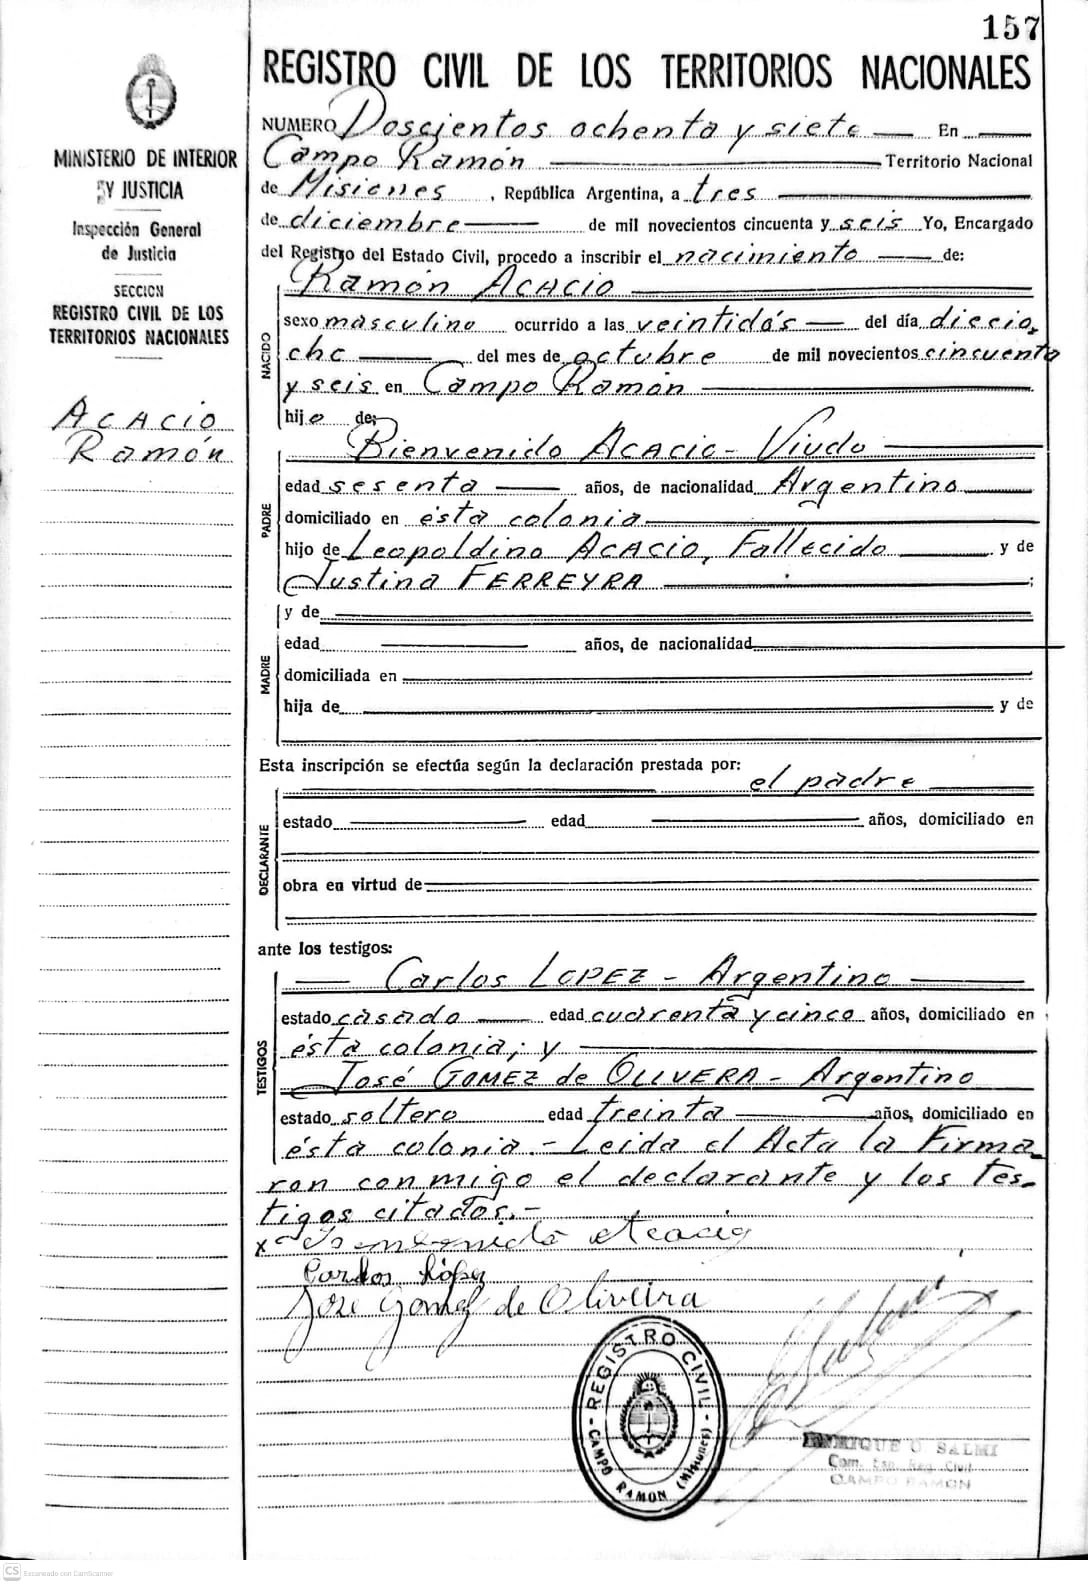 157
REGISTRO CIVIL DE LOS TERRITORIOS NACIONALES
MINISTERIO DE INTERIOR
Y JUSTICIA
Inspección General
de Justicia
SECCION
REGISTRO CIVIL DE LOS
TERRITORIOS NACIONALES
Acacio
Ramón
NUMERO Doscientos ochenta y siete En
Campo Ramón Territorio Nacional
de Misiones, República Argentina, a tres
de diciembre de mil novecientos cincuenta y seis Yo, Encargado
del Registro del Estado Civil, procedo a inscribir el nacimiento de:
NACIDO
Ramón ACACIO
sexo masculino ocurrido a las veintidós del día diecio
cho del mes de octubre de mil novecientos cincuenta
y seis en Campo Ramón
hijo de:
PADRE
Bienvenido ACACIO - Viudo
edad sesenta años, de nacionalidad Argentino
domiciliado en ésta colonia
hijo de Leopoldino ACACIO, Fallecido y de
Justina FERREYRA ;
MADRE
y de
edad años, de nacionalidad
domiciliada en
hija de y de
Esta inscripción se efectúa según la declaración prestada por:
DECLARANTE
el padre
estado edad años, domiciliado en
obra en virtud de
ante los testigos:
TESTIGOS
Carlos LOPEZ - Argentino
estado casado edad cuarenta y cinco años, domiciliado en
ésta colonia; y
José GOMEZ de OLIVERA - Argentino
estado soltero edad treinta años, domiciliado en
ésta colonia. - Leida el Acta la Firma
ron conmigo el declarante y los tes-
tigos citados.-
x Acacio
Carlos López
Jose Gomez de Oliveira
REGISTRO CIVIL
CAMPO RAMON (Misiones)
ENRIQUE O SALMI
Com. Esp. Reg. Civil
CAMPO RAMON
CS Escaneado con CamScanner